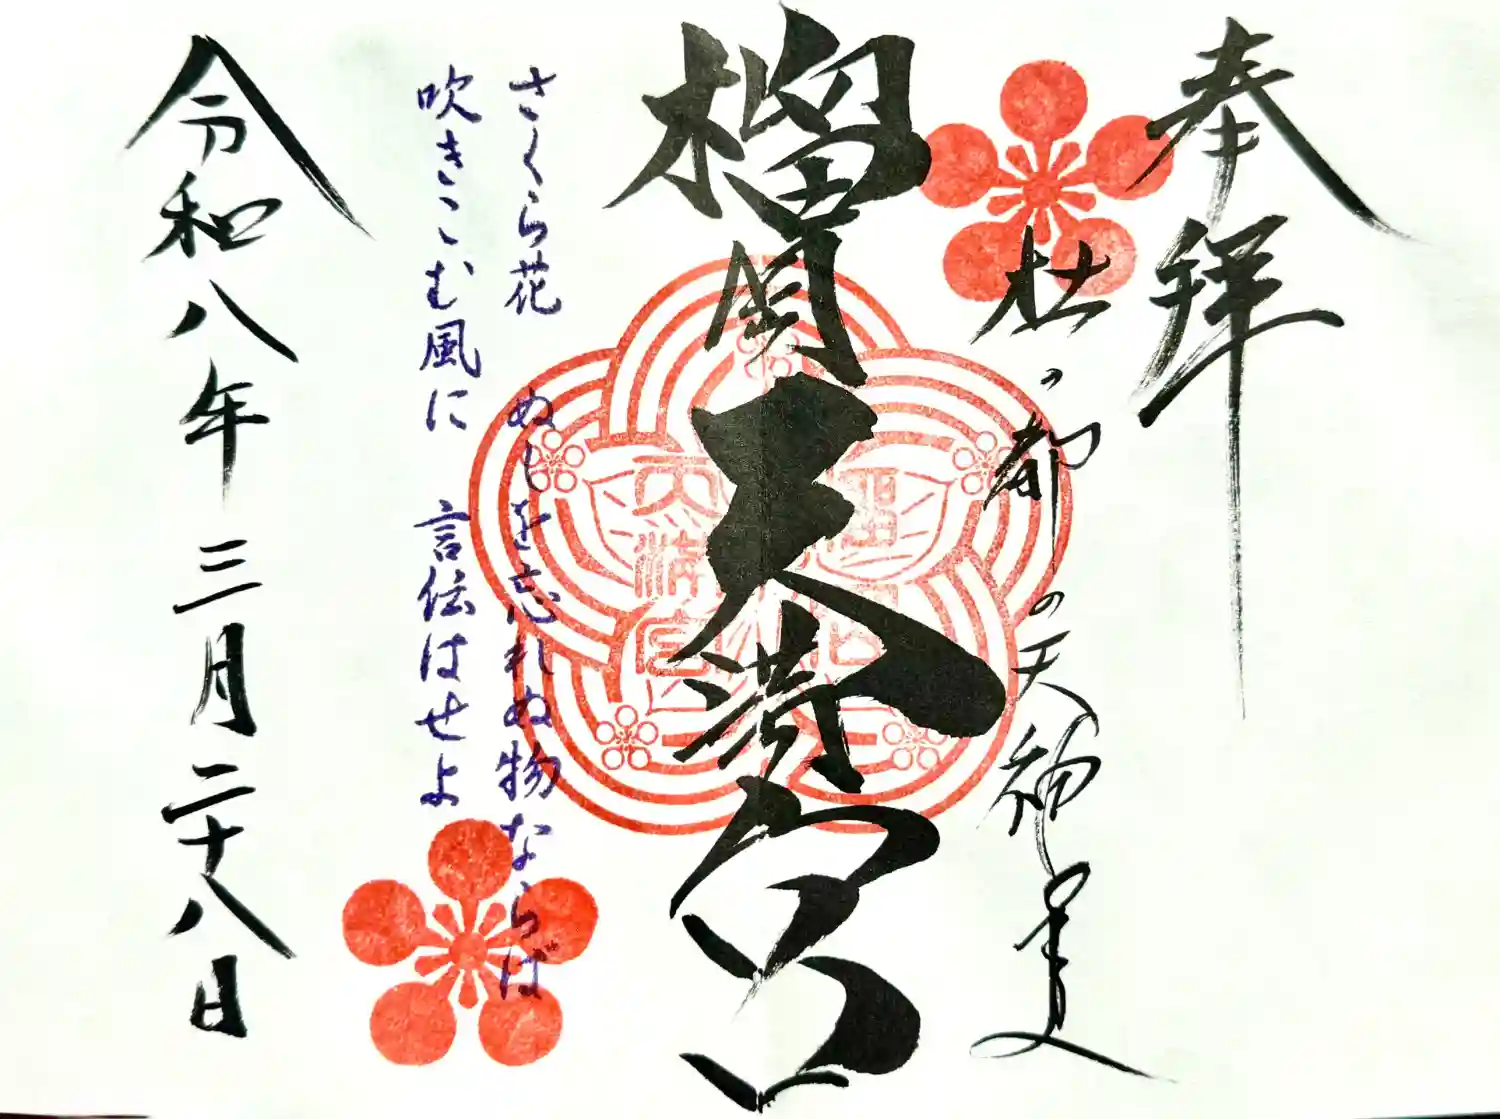 奉拝
杜の都の天神さま
榴岡天満宮
さくら花 ぬしを忘れぬ物ならば
吹きこむ風に 言伝はせよ
令和八年三月二十八日
榴岡
天満宮